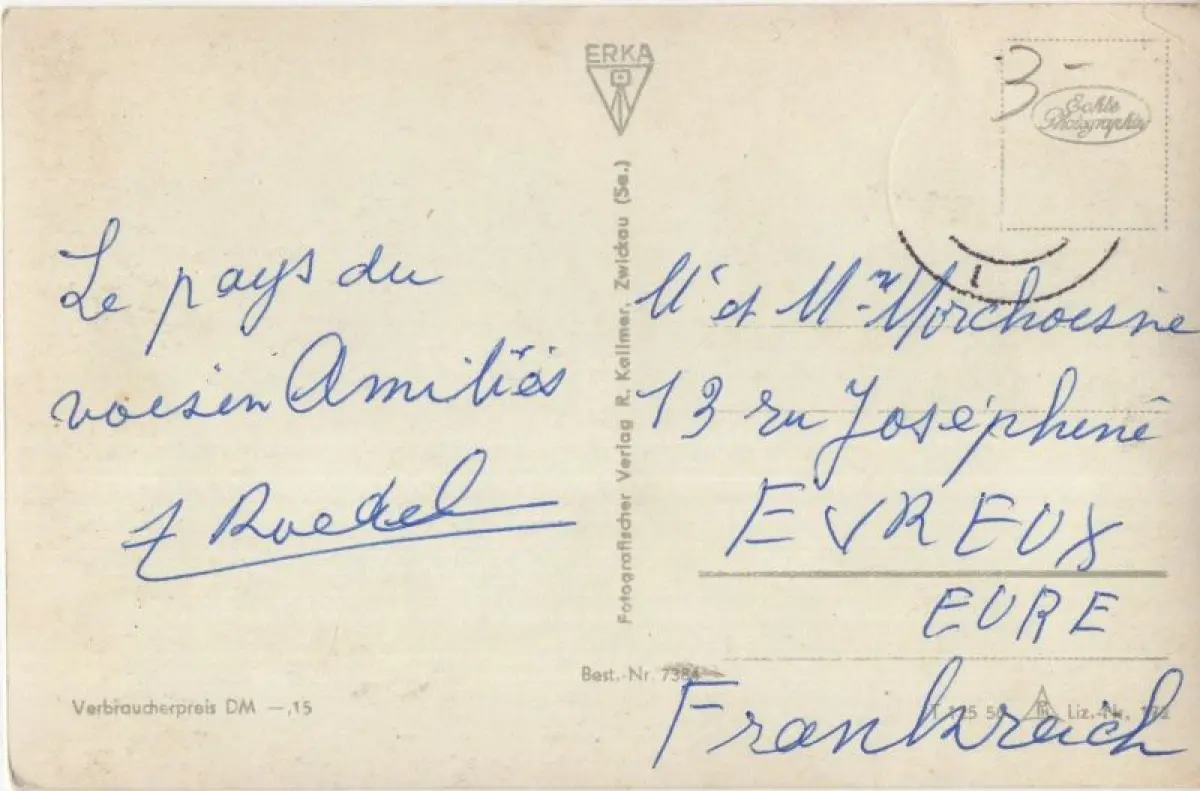 ERKA
3 -
Echte
Photographie
Le pays du
voisin Amitiés
Roedel
Fotografischer Verlag R. Kallmer, Zwickau (Sa.)
Mr et Mme
13 ru Joséphine
EVREUX
EURE
Frankreich
Best.-Nr. 7384
Verbraucherpreis DM —,15
T 125 50
Liz.-Nr. 172